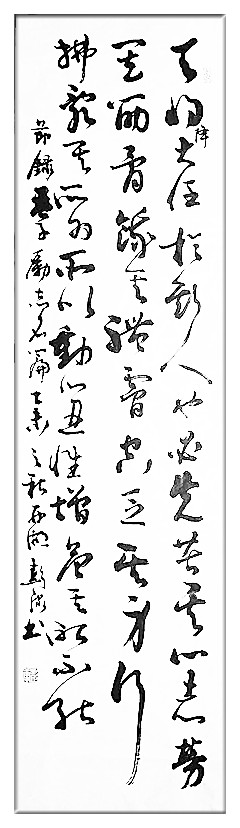 天将降大任於斯人也必先苦其心志勞
其筋骨餓其體膚空乏其身行
拂亂其所為所以動心忍性增益其所不能
節錄孟子勵志名篇乙未之秋書